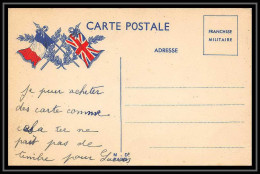 CARTE POSTALE
FRANCHISE
MILITAIRE
ADRESSE
je peux acheter
des carte comme
cela tu ne
pas de
timbre pour